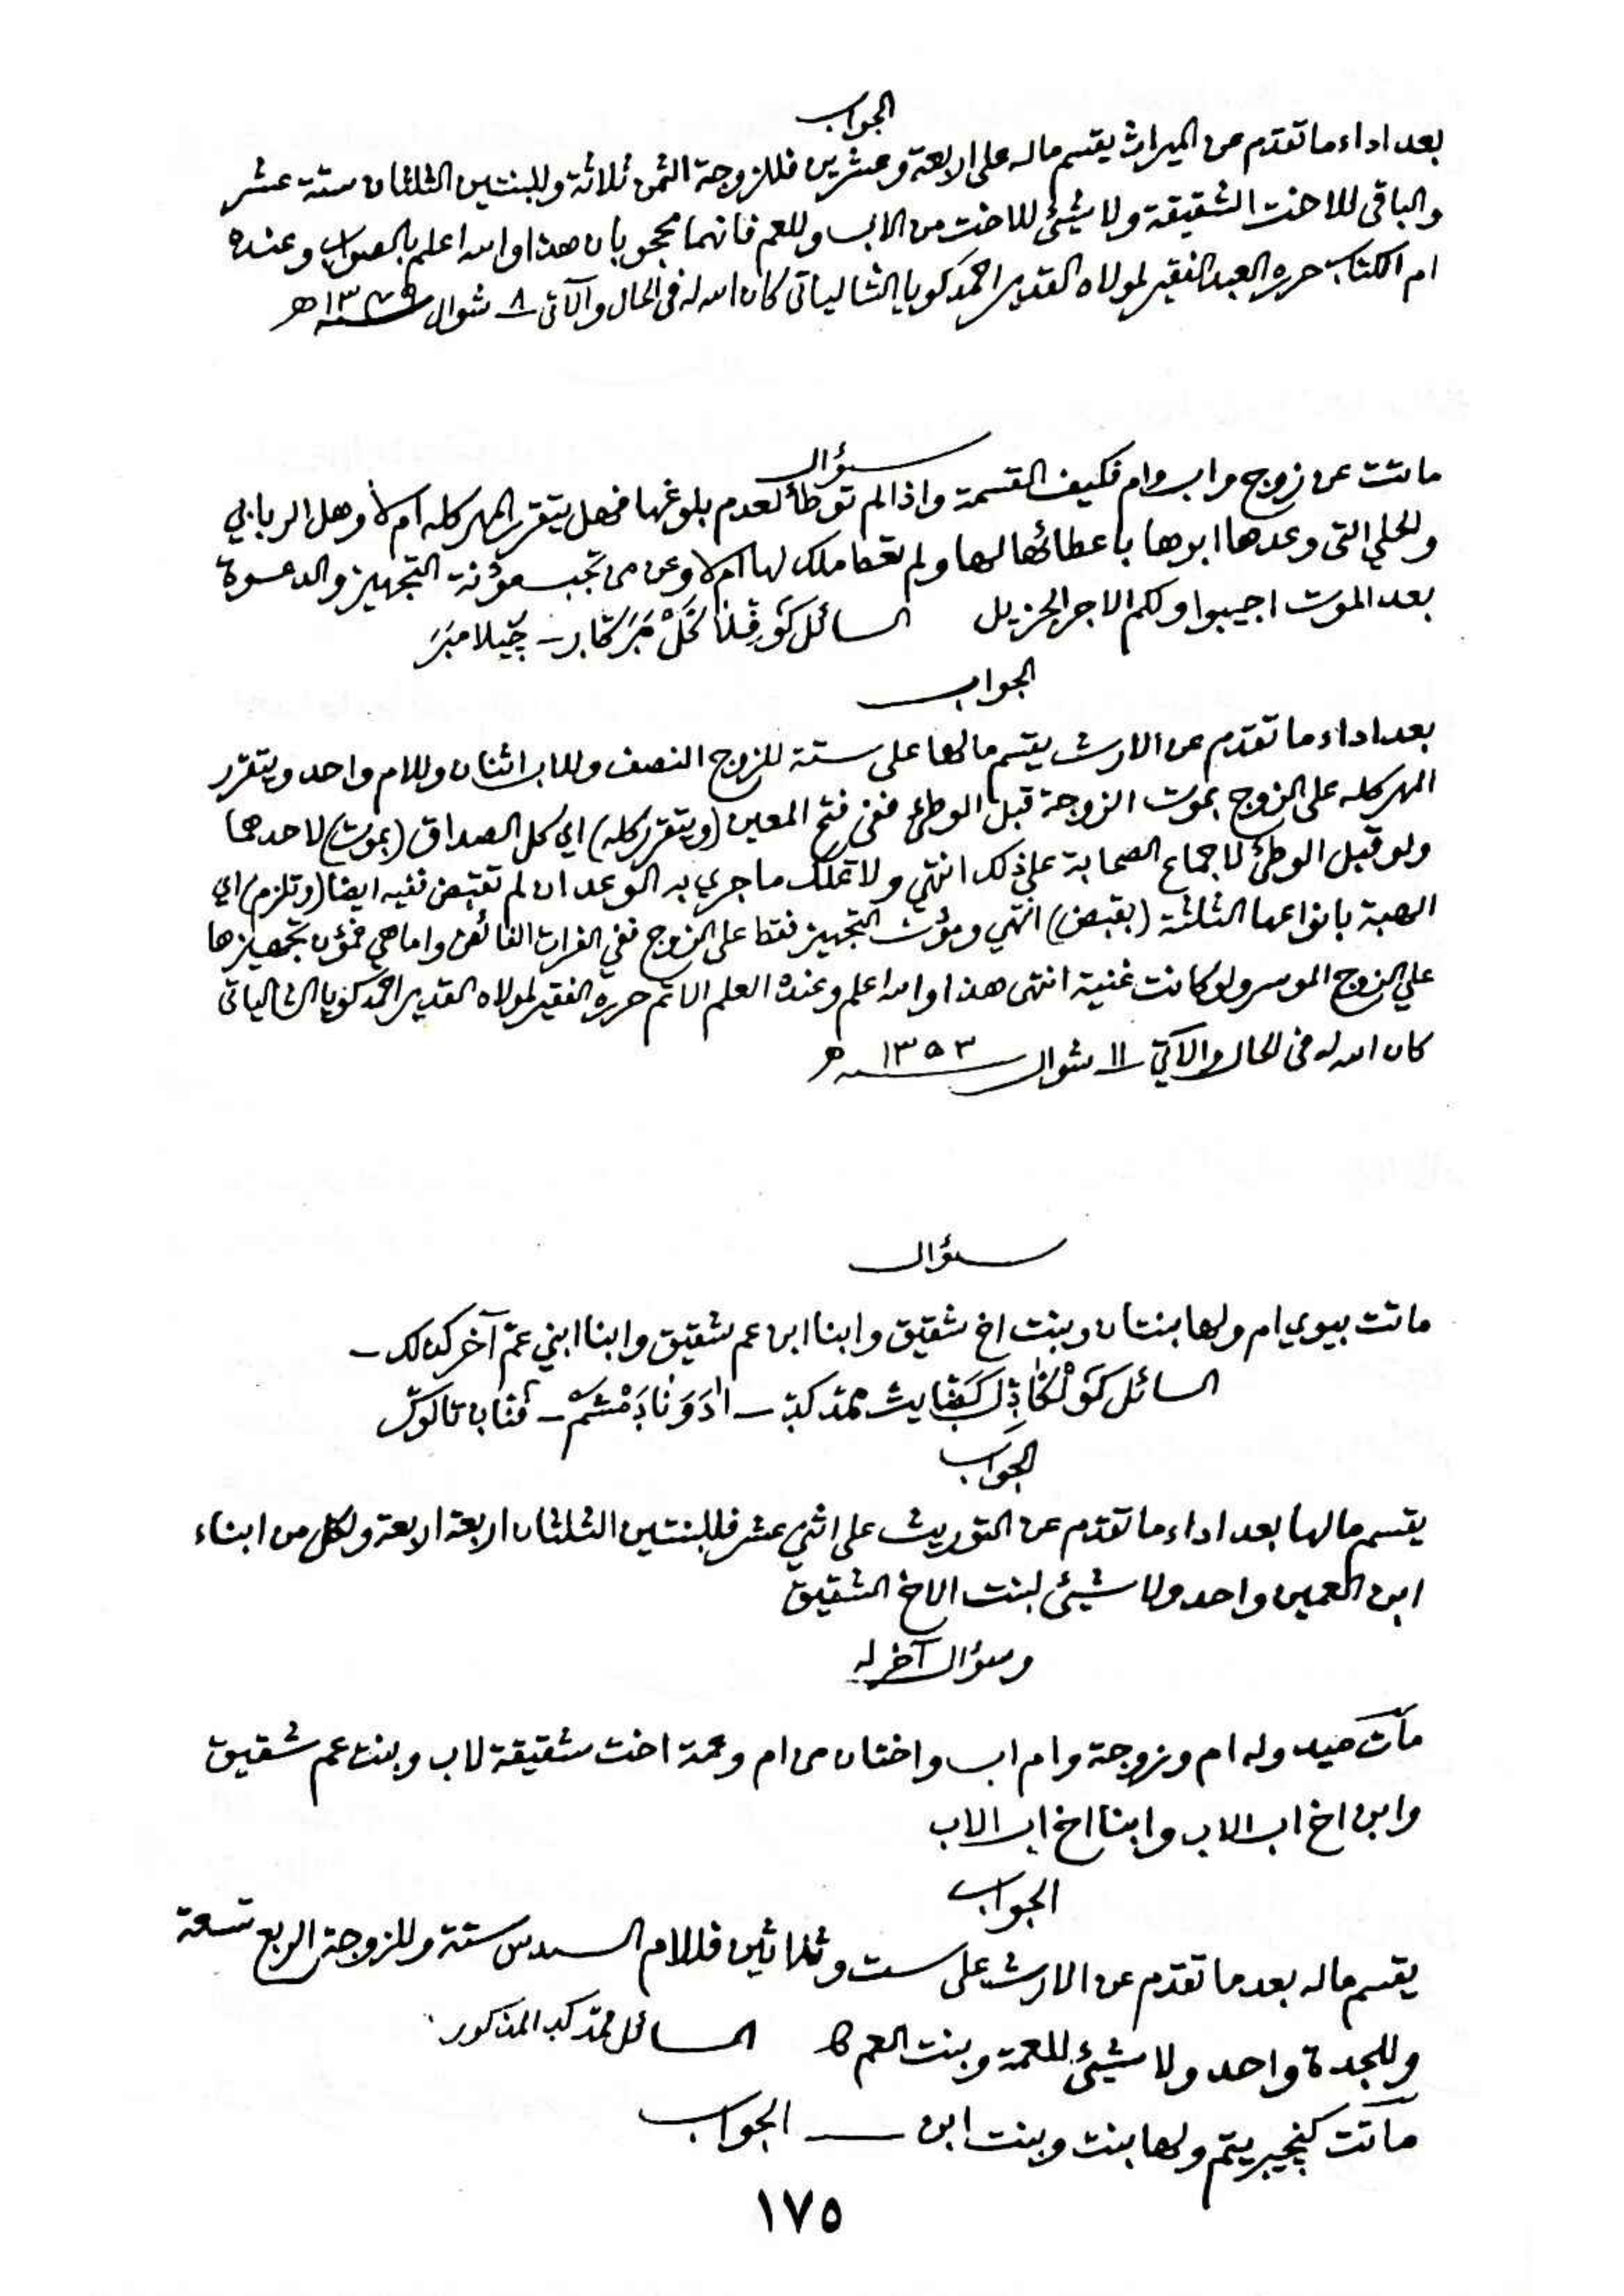 الجواب
بعد اداء ما تقدم عن الميراث يقسم ماله على اربعة وعشرين فللزوجة الثمن ثلاثة وللبنتين الثلثان ستة عشر
والباقى للاخت الشقيقة ولا شيئ للاخت من الاب وللعم فانهما محجوبان هذا والله اعلم بالصواب وعنده
ام الكتاب حرره العبد الفقير لمولاه القدير احمد كويا الشالياتى كان الله له فى الحال والآتى ٨ شوال
سؤال
ماتت عن زوج واب وام فكيف القسمة واذا لم توطأ لعدم بلوغها فهل يتقرر المهر كله ام لا وهل
والحلي التى وعدها ابوها باعطائها لها ولم تعط ملك لها ام لا وعن من تجب مؤنة التجهيز والدعوة
بعد الموت اجيبوا ولكم الاجر الجزيل السائل
الجواب
بعد اداء ما تقدم عن الارث يقسم مالها على ستة للزوج النصف وللاب اثنان وللام واحد ويتقرر
المهر كله على الزوج بموت الزوجة قبل الوطئ ففى فتح المعين (ويتقرر كله) اي كل الصداق (بموت) لاحدهما
ولو قبل الوطئ لاجماع الصحابة على ذلك انتهي ولا تملك ما جري به التوعد ان لم تقبض ففيه ايضا (وتلزم) اي
الهبة بانواعها الثلثة (بقبض) انتهي ومؤنة التجهيز فقط على الزوج ففي الفرات الفائض واما هي فمؤن تجهيزها
علي الزوج الموسر ولو كانت غنية انتهى هذا والله اعلم وعنده العلم الاتم حرره الفقير لمولاه القدير احمد كويا الشالياتى
كان الله له فى الحال والآتي ١١ شوال ١٣٥٣ ه
سؤال
ماتت بيوي ام ولها بنتان وبنت اخ شقيق وابنا ابن عم شقيق وابنا ابني عم آخر كذلك –
السائل
الجواب
يقسم مالها بعد اداء ما تقدم عن التوريث على اثني عشر فللبنتين الثلثان اربعة اربعة ولكل من ابناء
ابن العمين واحد ولا شيئ لبنت الاخ الشقيق
وسؤال آخر له
مات صيد وله ام وزوجة وام اب واختان من ام وعمة اخت شقيقة لاب وبنت عم شقيق
وابن اخ اب الاب وابنا اخ اب الاب
الجواب
يقسم ماله بعد ما تقدم عن الارث على ست وثلاثين فللام السدس ستة وللزوجة الربع تسعة
وللجدة واحد ولا شيئ للعمة وبنت العم السائل محمد المذكور
ماتت ولها بنت وبنت ابن — الجواب
١٧٥